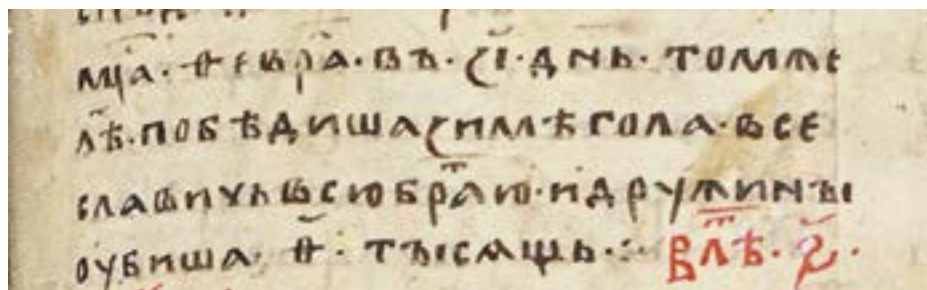 мц҃а · ѳеврⷶа · въ · ѕ҃і · днь · томже
лѣⷮ · побѣдиша ѕимѣгола · все
славичь всю браⷮю · и дружины
оубиша · ѳ҃ · тысѧщь ·:· В лѣⷮ · ѕ҃ ·